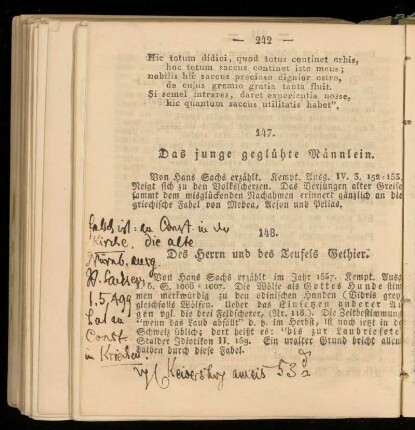 — 242 —
Hic totum didici, quod totus continet orbis,
hoc totum saccus continet iste meus;
nobilis hic saccus precioso dignior ostro,
de cujus gremio gratia tanta fluit.
Si semel intrares, daret experientia nosse,
hic quantum saccus utilitatis habet".
147.
Das junge geglühte Männlein.
Von Hans Sachs erzählt. Kempt. Ausg. IV. 3, 152-153.
Neigt sich zu den Volksscherzen. Das Verjüngen alter Greise
sammt dem misglückenden Nachahmen erinnert gänzlich an die
griechische Fabel von Medea, Aeson und Pelias.
148.
Des Herrn und des Teufels Gethier.
Von Hans Sachs erzählt im Jahr 1557. Kempt. Ausg.
I. 5. S. 1006-1007. Die Wölfe als Gottes Hunde stim-
men merkwürdig zu den odinischen Hunden (Vidris grey)
gleichfalls Wölfen. Ueber das Einsetzen anderer Au-
gen vgl. die drei Feldscherer, (Nr. 118.). Die Zeitbestimmung
"wenn das Laub abfällt" d. h. im Herbst, ist noch jetzt in der
Schweiz üblich; dort heißt es: "bis zur Laubriese"
Stalder Idiotikon II, 159. Ein uralter Grund bricht allent-
halben durch diese Fabel.
in der
Kirche, die alte
Nürnb. ausg.
1.5,499
Const.
vgl Keisersberg omeis 53